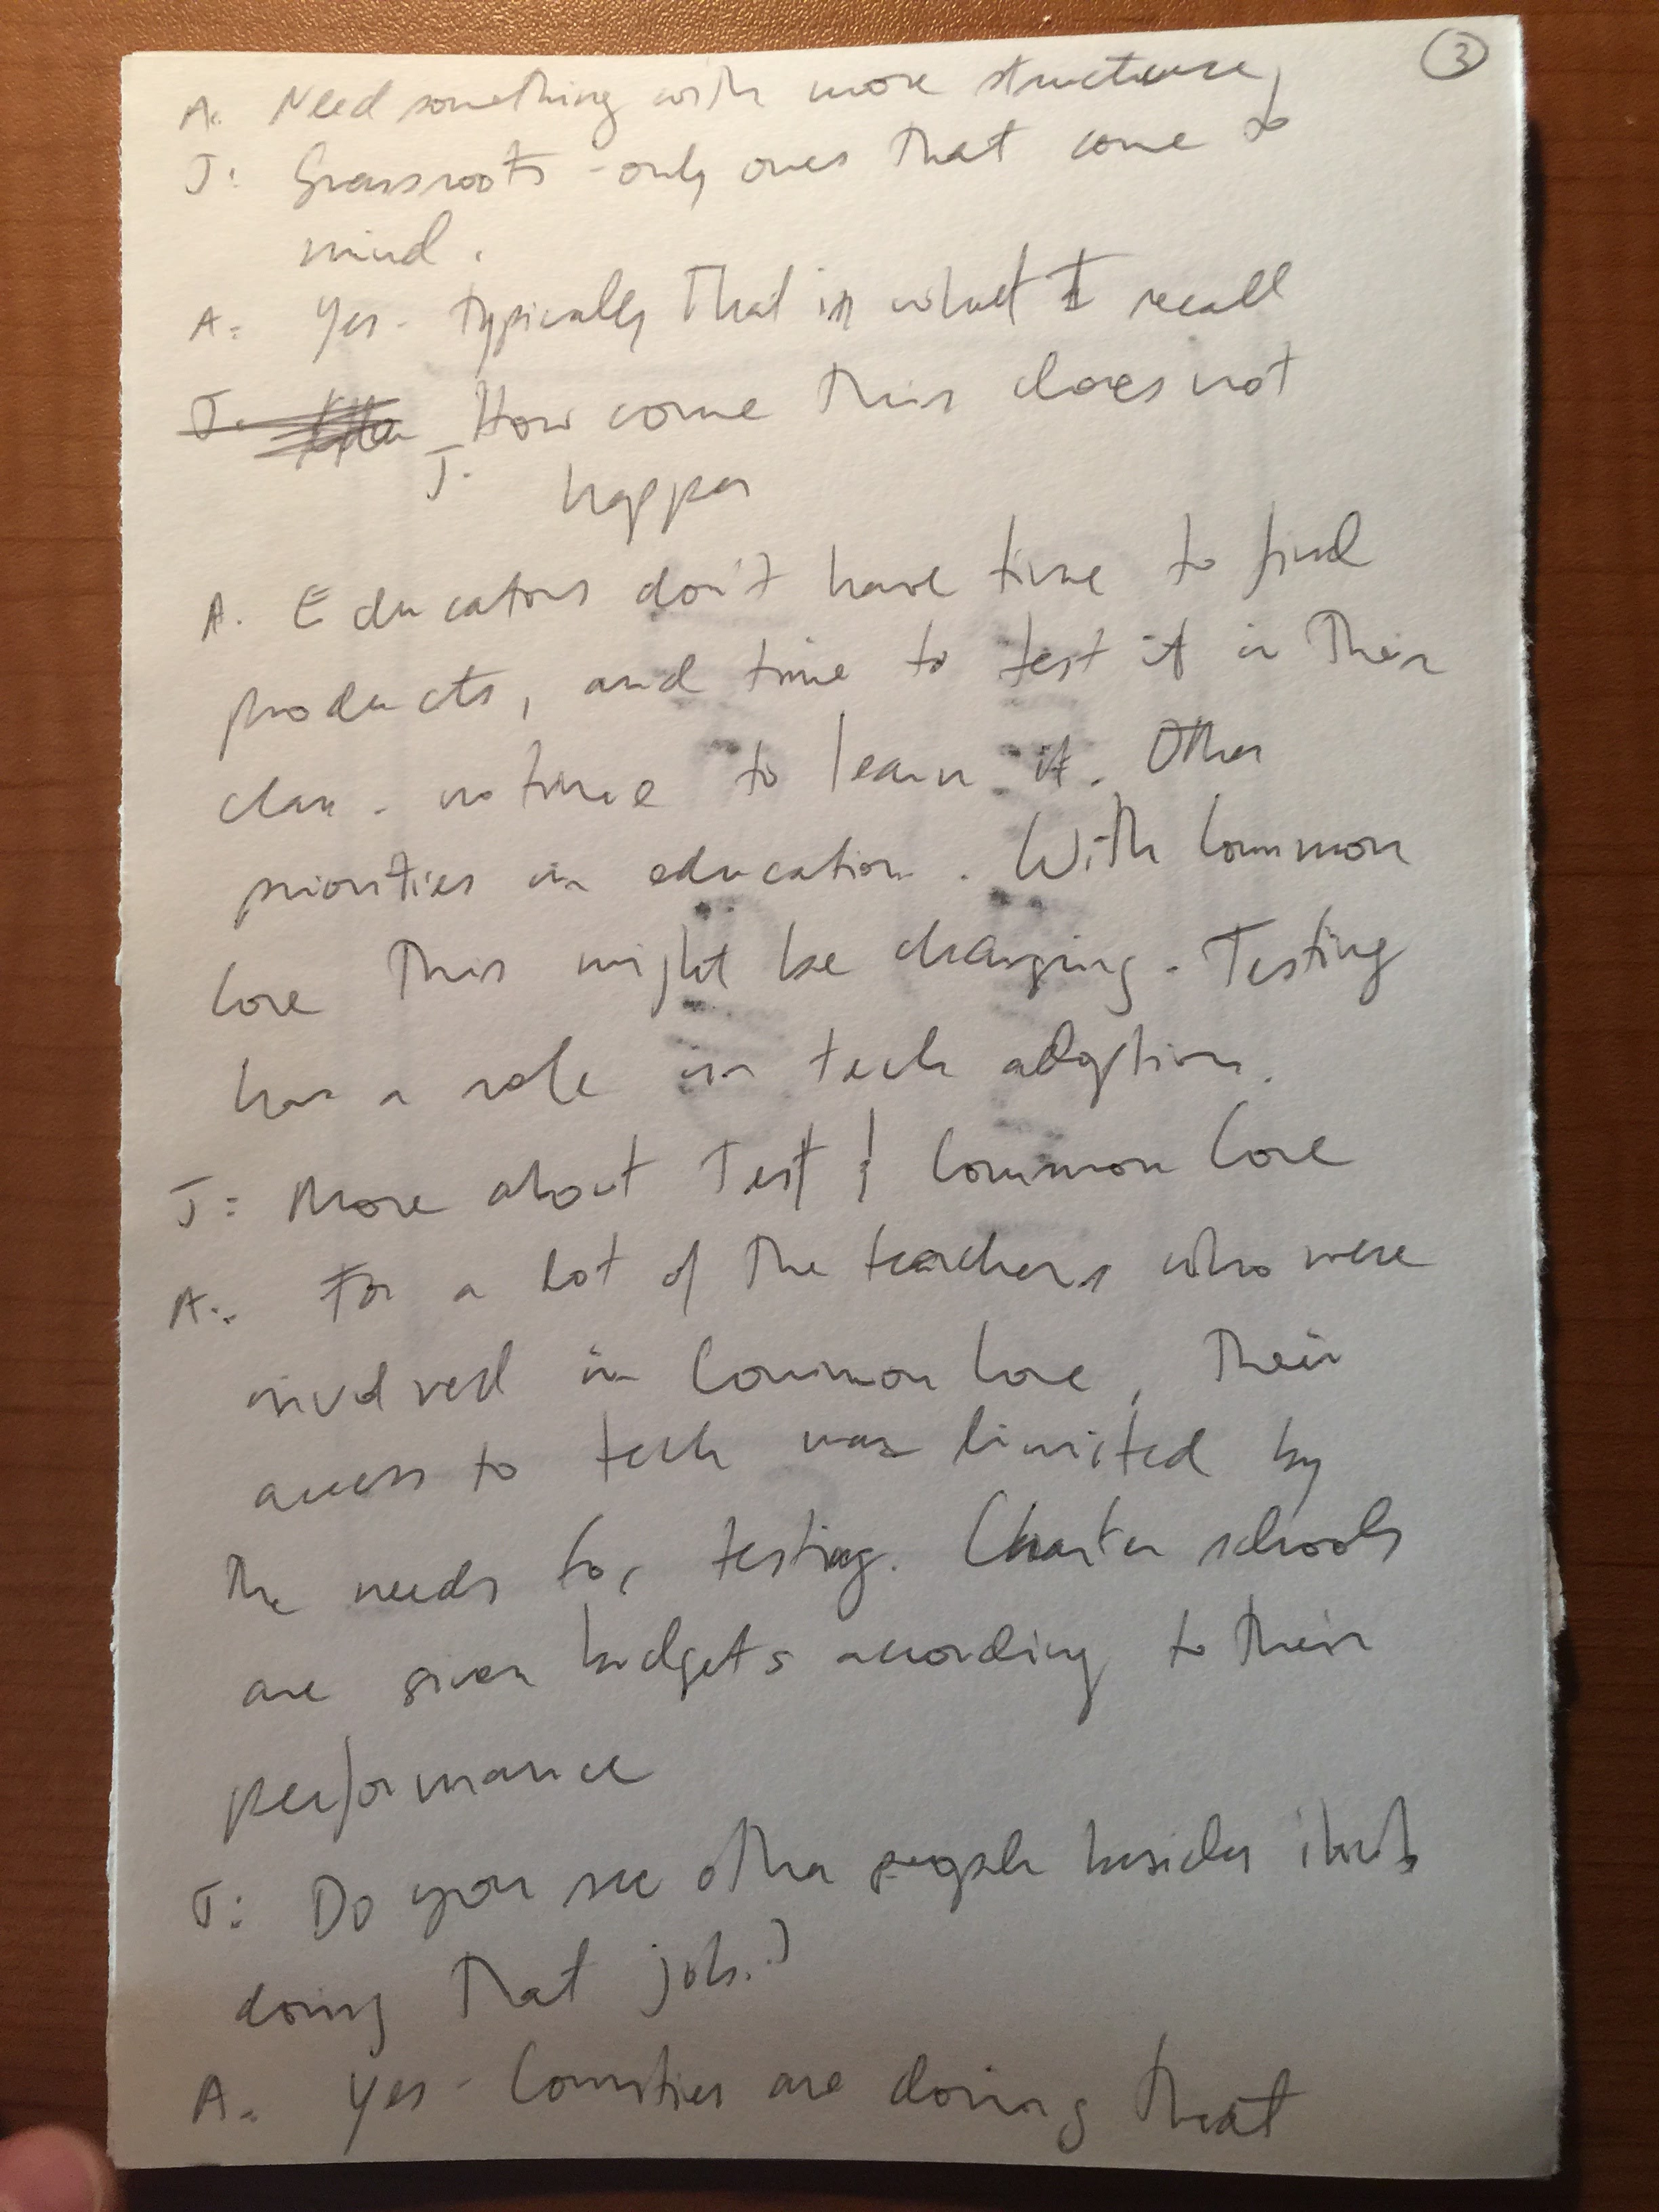 3
A. Need something with more structure,
J: Grassroots - only ones that come to
mind.
A: Yes - typically that is what I recall
J. How come this does not
J.
happen
A. Educators don't have time to find
products, and time to test it in their
class - no time to learn it. Other
priorities in education. With Common
Core this might be changing - Testing
has a role in tech adoption.
J: More about Test & Common Core
A: For a lot of the teachers who were
involved in Common Core, their
access to tech was limited by
the needs for testing. Charter schools
are given budgets according to their
performance
J: Do you see other people besides
doing that job?
A. Yes - Counties are doing that